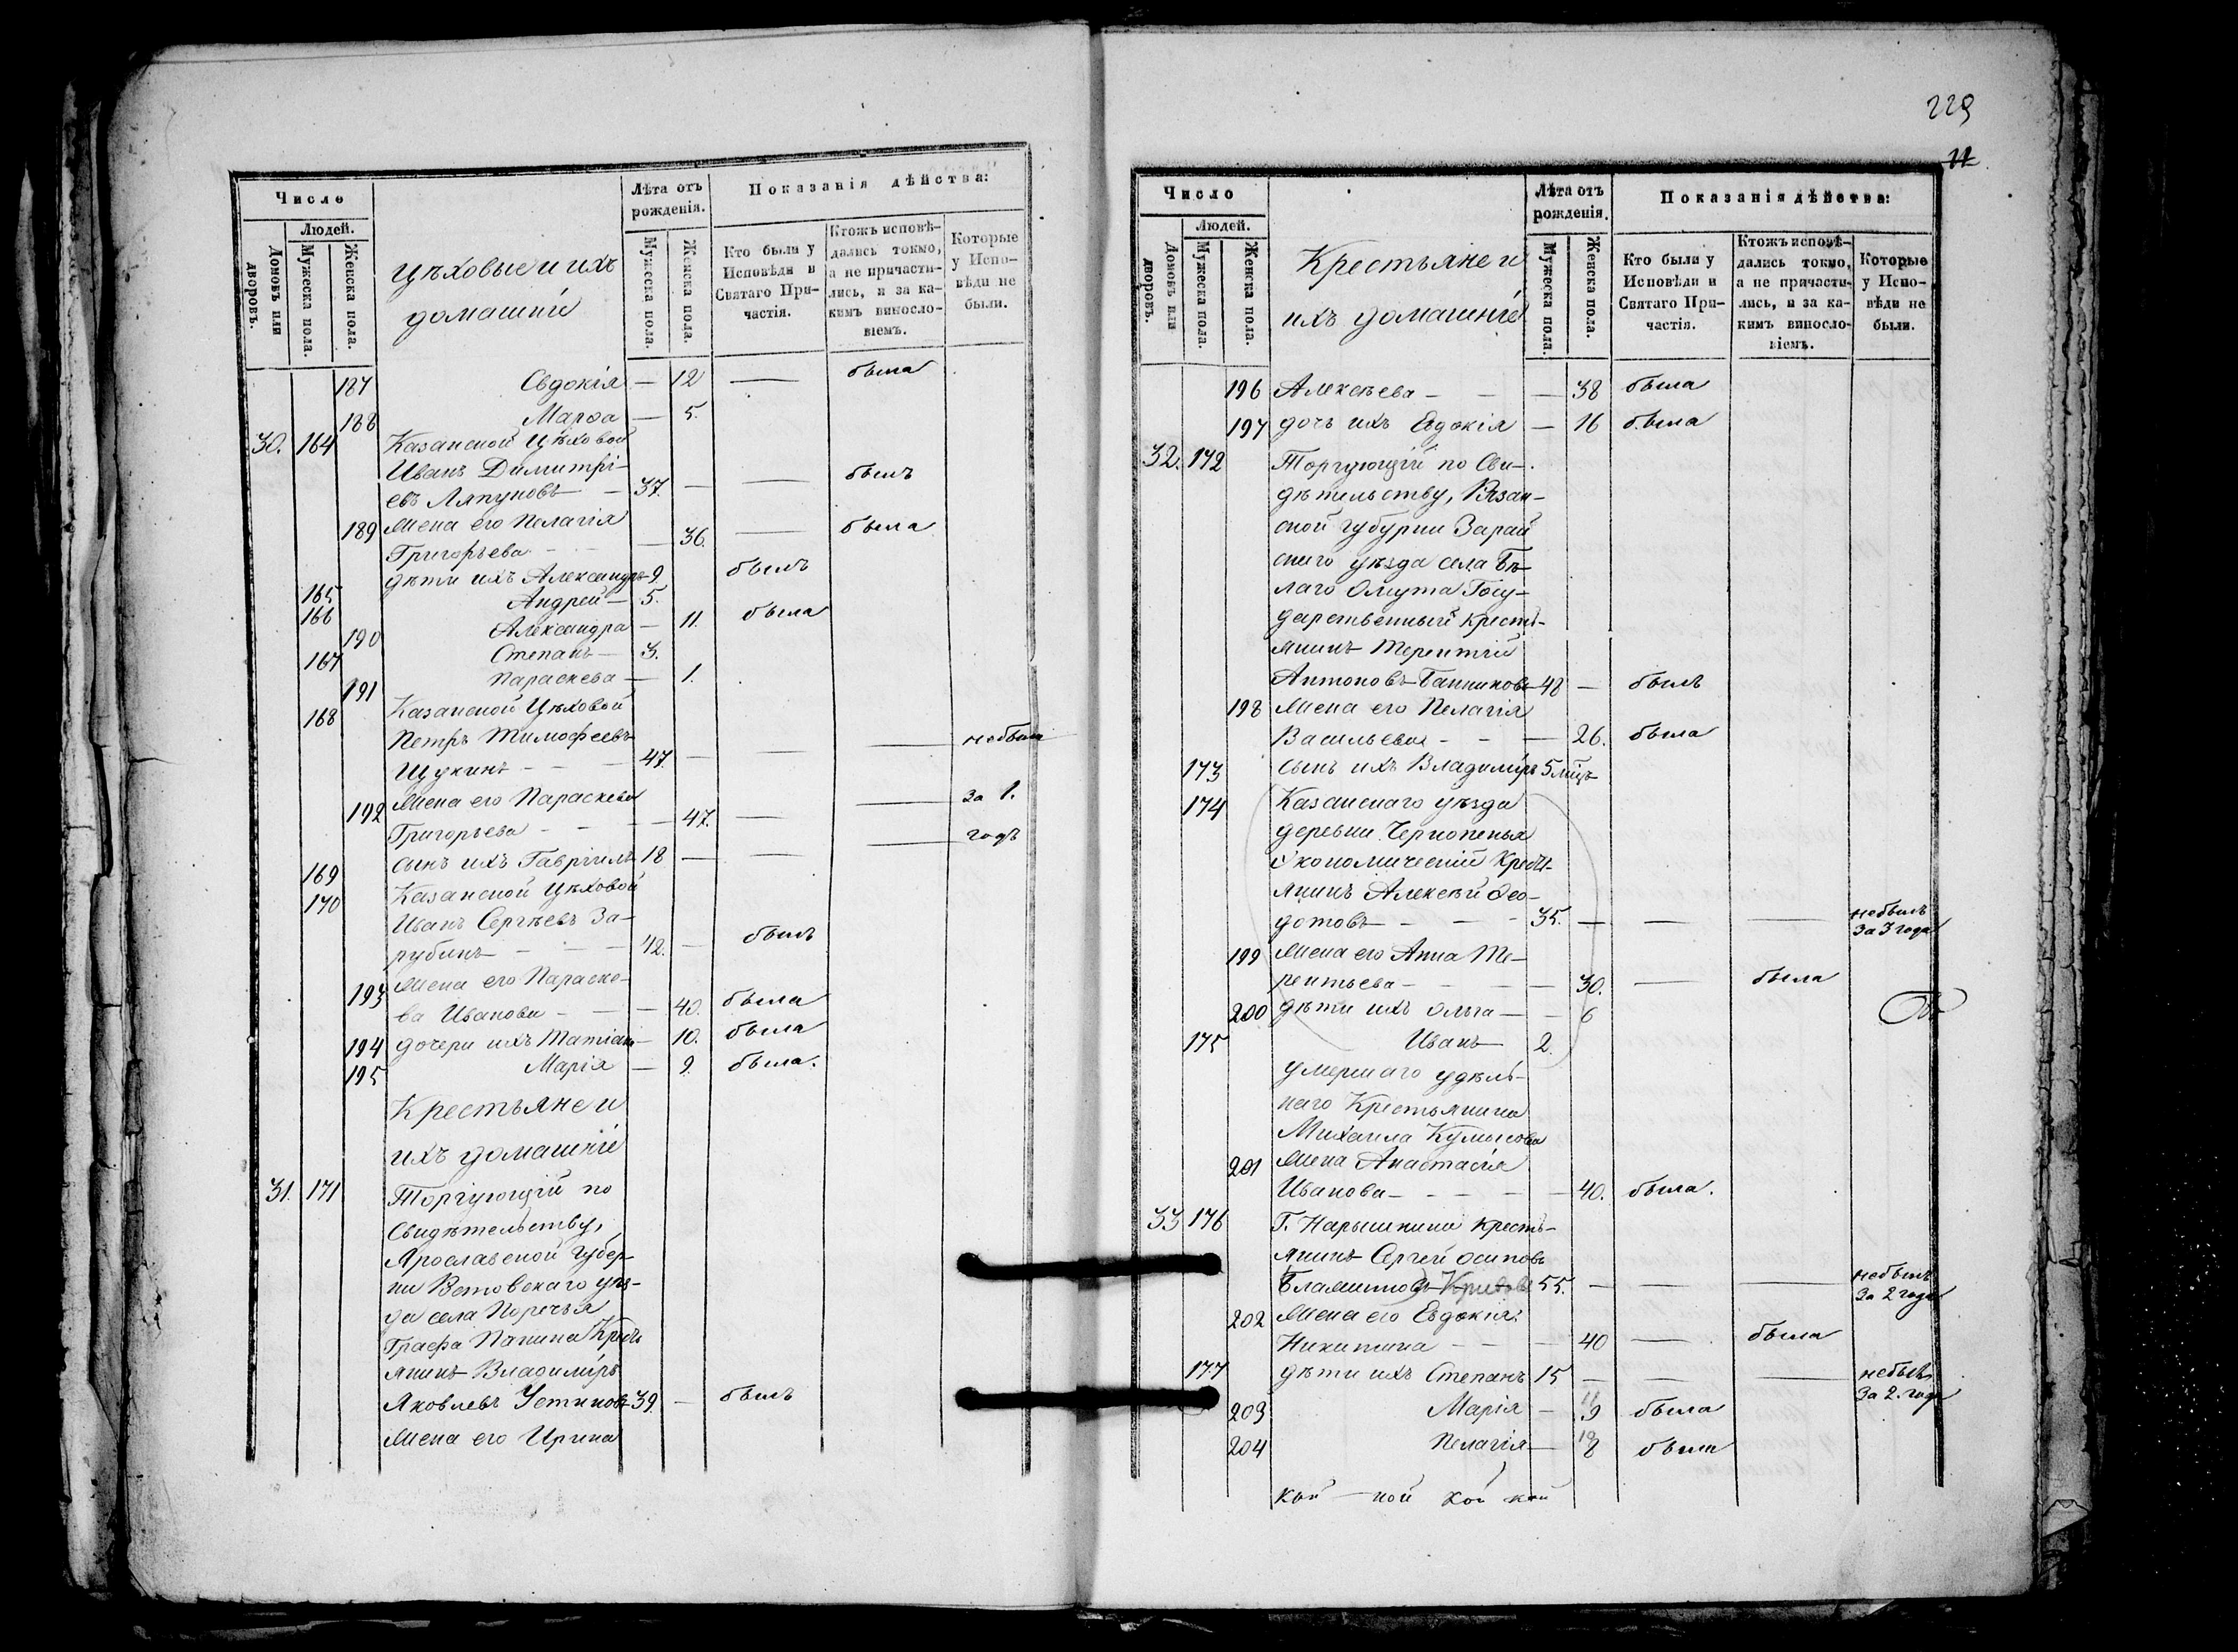 Число
Людей.
Домовъ или дворовъ.
Мужеска пола.
Женска пола.
цѣховые и ихъ
домашніи
Лѣта отъ рожденія.
Мужеска пола.
Женска пола.
Показанія дѣйства:
Кто были у Исповѣди и Святаго Причастія.
Ктожъ исповѣдались токмо, а не причастились, и за какимъ винословіемъ.
Которые у Исповѣди не были.
187 Евдокія — 12 — была
188 Марѳа — 5.
30. 164 Казанской Цѣховой
Иванъ Димитрі-
евъ Ляпуновъ — 37. — — былъ
189 Жена его Пелагія
Григорьева — — 36. — была
165 дѣти ихъ Александръ 9. былъ
166 Андрей — 5.
190 Александра — 11. была
167 Степанъ — 3.
191 Параскева — 1.
168 Казанской Цѣховой
Петръ Тимофеевъ
Щукинъ — — — 47. — — — небыли
192 Жена его Параскева
Григорьева — — — 47. — — за 1.
169 сынъ ихъ Гавріилъ 18 — — — годъ
170 Казанской Цѣховой
Иванъ Сергѣевъ За-
рубинъ — — — 42. — былъ
193 Жена его Параске-
ва Иванова — — 40. была
194 дочери ихъ Татіана — 10. была
195 Марія — 9. была.
Крестьяне и
ихъ домашніе
31. 171 Торгующій по
Свидѣтельству,
Ярославской Губер-
ни Ростовскаго уѣз-
да села Поречья
Графа Панина Крест
янинъ Владиміръ
Яковлевъ Устиновъ 39. — былъ
Жена его Ирина
229
11
Число
Людей.
Домовъ или дворовъ.
Мужеска пола.
Женска пола.
Крестьяне и
ихъ домашніе
Лѣта отъ рожденія.
Мужеска пола.
Женска пола.
Показанія дѣйства:
Кто были у Исповѣди и Святаго Причастія.
Ктожъ исповѣдались токмо, а не причастились, и за какимъ винословіемъ.
Которые у Исповѣди не были.
196 Алексѣева — — — 38 была
197 дочь ихъ Евдокія — 16 была
32. 172 Торгующій по Сви-
дѣтельству, Рязан-
ской губурни Зарай
скаго уѣзда села Бѣ-
лаго Омута Госу-
дарственный крестъ-
янинъ Терентій
Антоновъ Банниковъ 48 — былъ
198 Жена его Пелагія
Васильева — — — 26. была
173 сынъ ихъ Владиміръ 5 мѣцъ
174 Казанскаго уѣзда
деревни Чернопенья
Экономическій Крестъ-
янинъ Алексѣй Ѳео-
дотовъ — — — 35. — — — небылъ
за 3 года
199 Жена его Анна Те-
рентьева — — — — 30. — была
200 дѣти ихъ Ольга — — 6
175 Иванъ — 2.
умершаго удѣль-
наго Крестьянина
Михаила
201 Жена Анастасія
Иванова — — — — 40. была.
33 176 Г. Нарышкина крестъ-
янинъ Сергѣй Осиповъ
55. — — — небылъ
за 2 года
202 Жена его Евдокія
Никитина — — — 40 — была
177 дѣти ихъ Степанъ 15 — — — небылъ
за 2. года
203 Марія — 9 была
204 Пелагія — 8 была
кой — ной кой кой